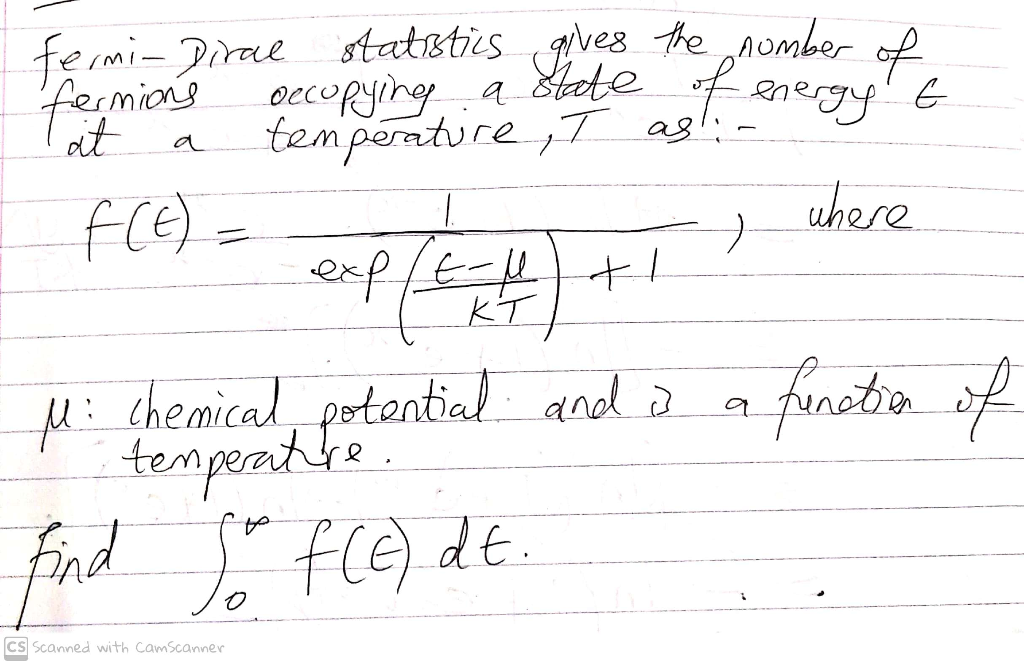 Fermi-Dirac statistics gives the number of
fermions occupying a state of energy ϵ
at a temperature, T as:-
f(ϵ) = 1 / (exp((ϵ-μ)/KT) + 1), where
μ: chemical potential and is a function of
temperature.
find ∫₀^∞ f(ϵ) dϵ.
CS Scanned with CamScanner